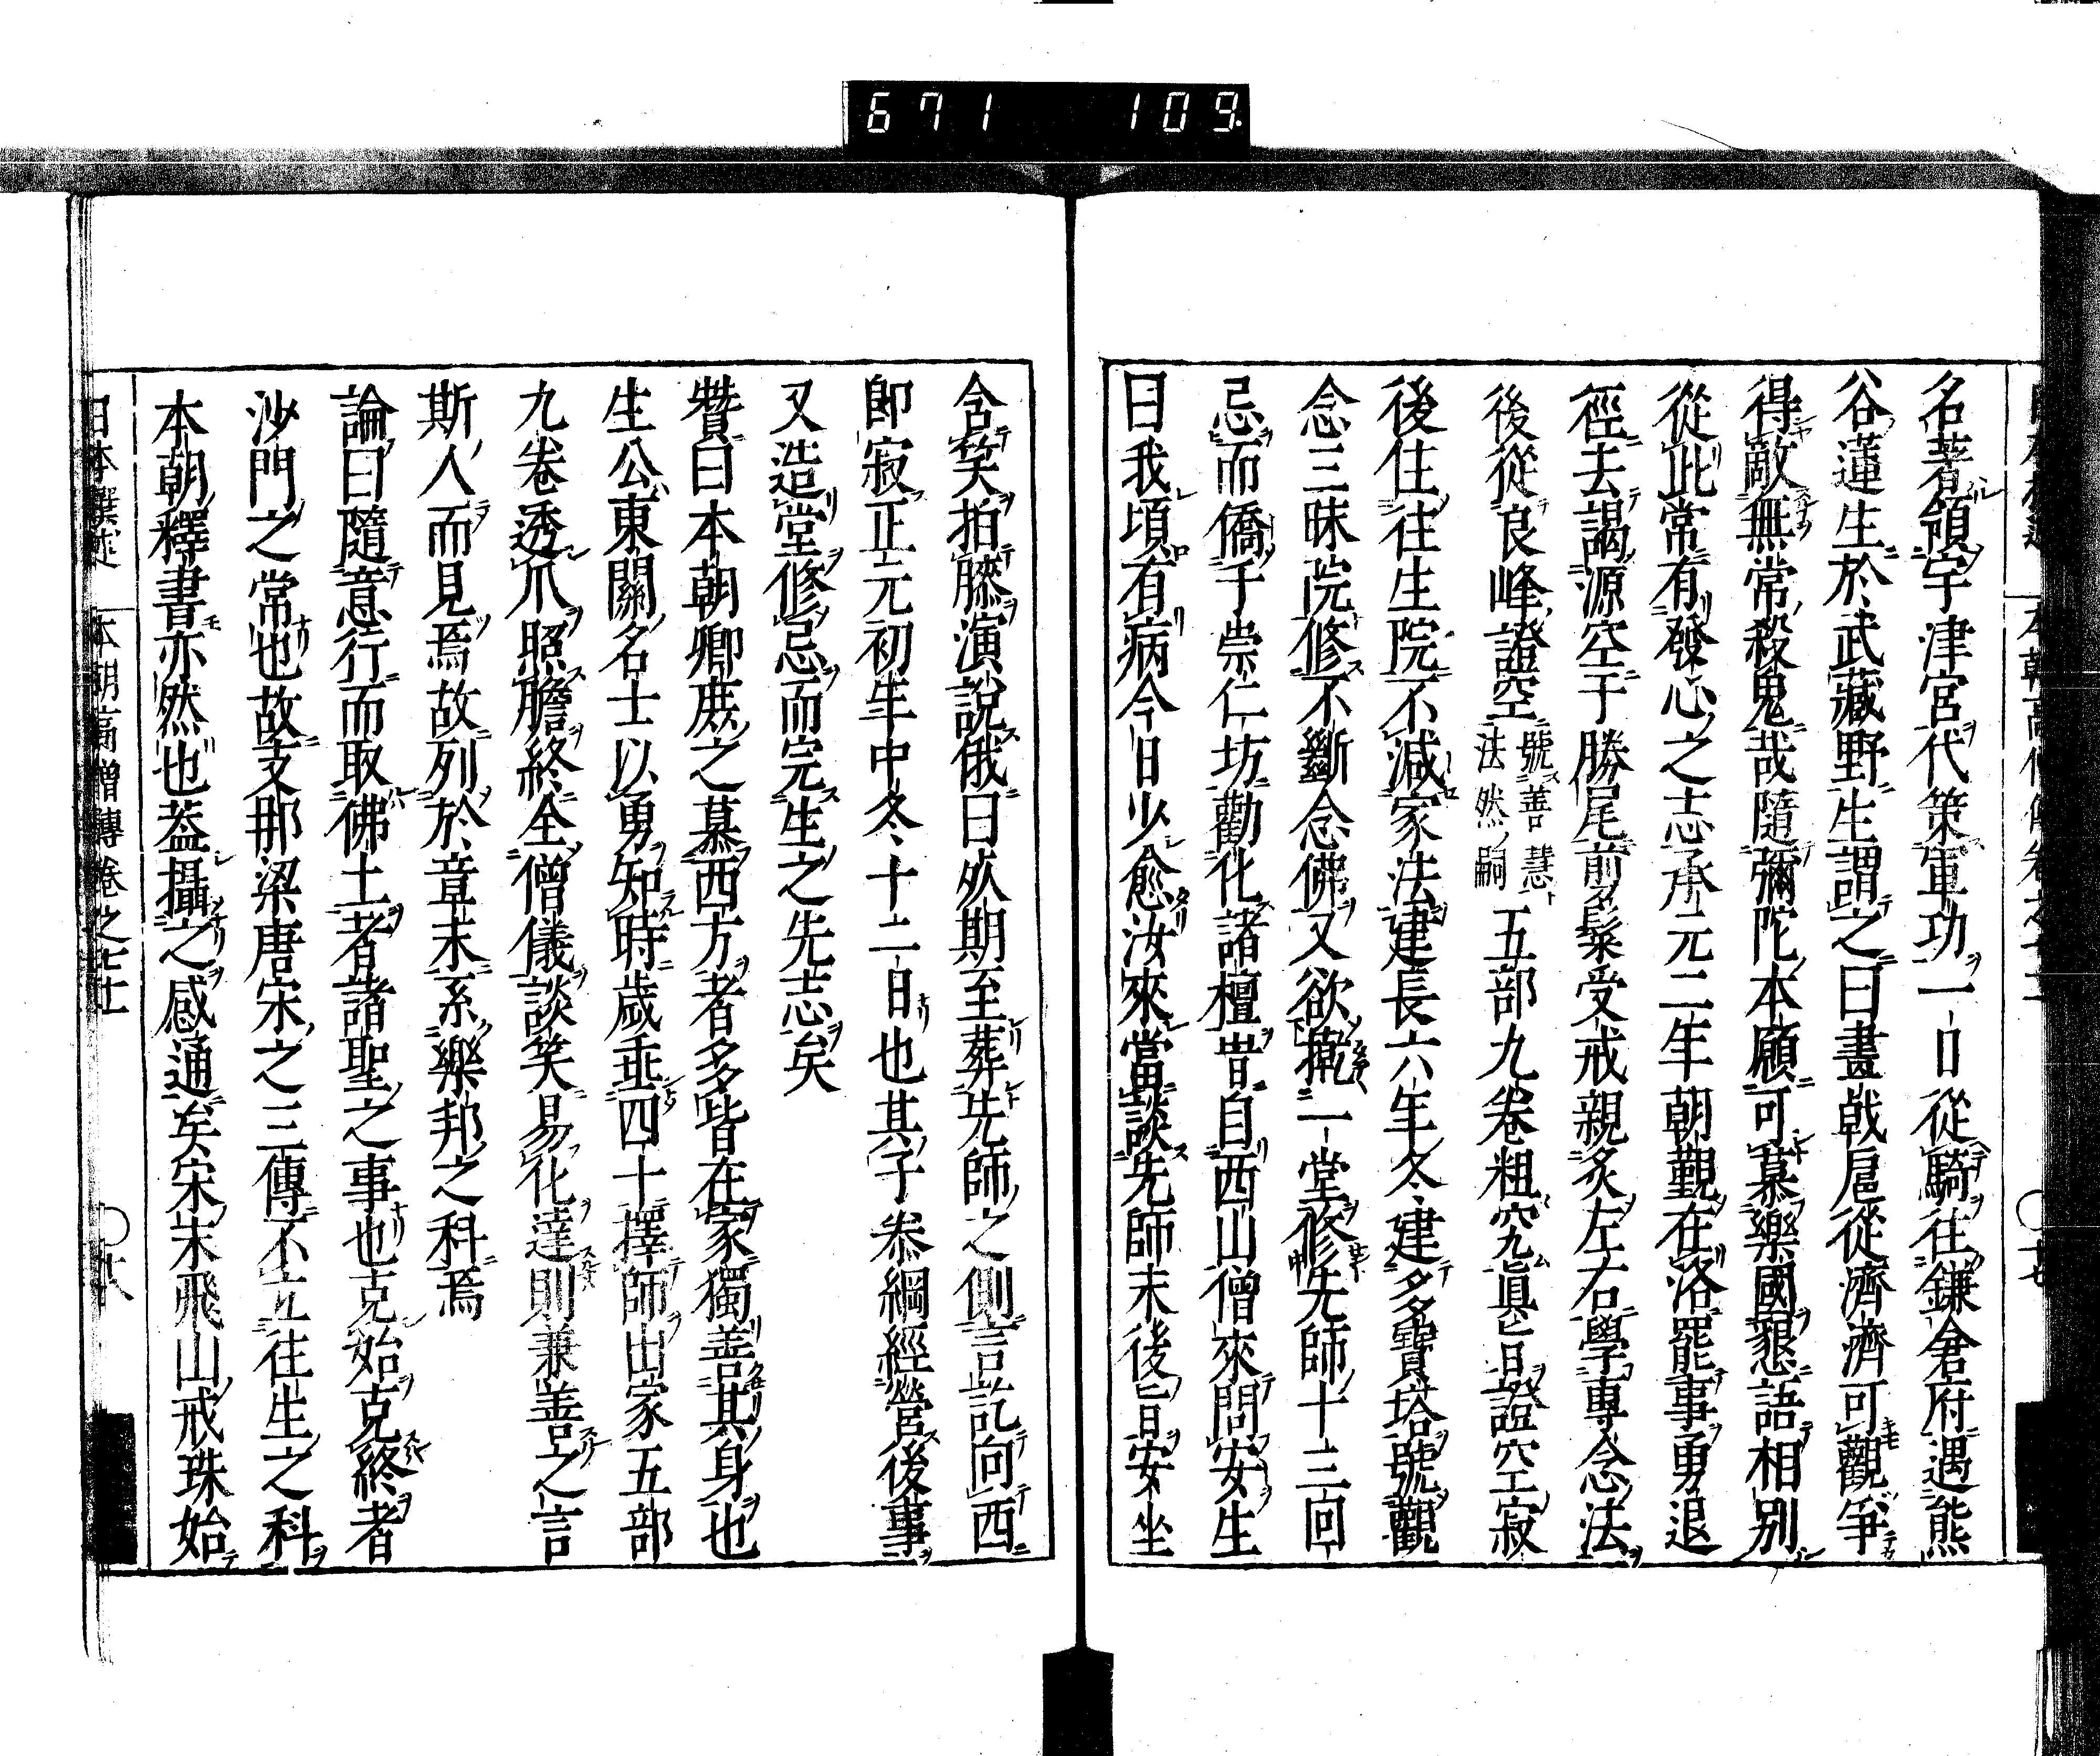 671 109
名著領宇津宮代策軍功一日從騎往鎌倉府遇熊
谷蓮生於武藏野生謂之曰晝戟扈從濟濟可觀爭
得敵無常殺鬼哉隨彌陀本願可慕樂國懇語相別
從此常有發心之志承元二年朝覲在洛罷事勇退
徑去謁源空于勝尾剪髮受戒親炙左右學專念法
後從良峰證空號善慧法然嗣五部九卷粗究眞旨證空寂
後住往生院不減家法建長六年冬建多寶塔號觀
念三昧院修不斷念佛又欲㨿一堂修先師十三回
忌而僑于崇仁坊勸化諸檀昔自西山僧來問安生
曰我頃有病今日少愈汝來當談先師末後旨安坐
含笑拍膝演說俄曰死期至葬先師之側言訖向西
卽寂正元初年中冬十二日也其子泰綱經營後事
又造堂修忌而完生之先志矣
贊曰本朝卿庶之慕西方者多皆在家獨善其身也
生公東關名士以勇知時歲垂四十擇師出家五部
九卷透爪照膽終全僧儀談笑易化達則兼善之言
斯人而見焉故列於章末系樂邦之科焉
論曰隨意行而取佛土者諸聖之事也克始克終者
沙門之常也故支那梁唐宋之三傳不立往生之科
本朝釋書亦然也蓋攝之感通矣宋末飛山戒珠始
日本撰述 本朝高僧傳卷之七十 ○十八